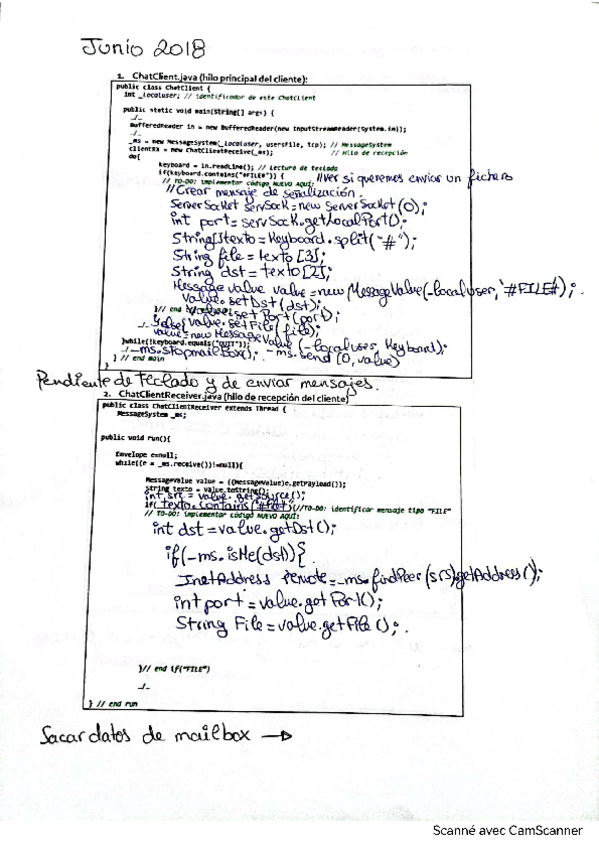 Junio 2018
1. ChatClient.java (hilo principal del cliente):
public class ChatClient {
int _localuser; // identificador de este ChatClient
public static void main(String[] args) {
_/_
BufferedReader in = new BufferedReader(new InputStreamReader(System.in));
_/_
_ms = new MessageSystem(_localuser, usersFile, tcp); // MessageSystem
clientRx = new ChatClientReceive(_ms); // Hilo de recepción
do{
keyboard = in.readLine(); // Lectura de teclado
if(keyboard.contains("#FILE")) { //Ver si queremos enviar un fichero
// TO-DO: implementar código NUEVO AQUI:
//Crear mensaje de señalización.
ServerSocket servSock = new ServerSocket (0);
int port = servSock.getLocalPort();
String[]texto = Keyboard.split("#");
String file = texto [3];
String dst = texto [2];
Message Value value = new MessageValue(-localuser, '#FILE#);
value.setDst (dst);
}// end value.set Port (port);
_/_ }else{ value.setFile (file);
value = new Message Value (-localuser, Keyboard);
}while(!keyboard.equals("QUIT"));
_/_ -ms.stopmailBox(); -ms.send (0, value)
} // end main
}
Pendiente de teclado y de enviar mensajes.
2. ChatClientReceiver.java (hilo de recepción del cliente)
public class ChatClientReceiver extends Thread {
MessageSystem _ms;
public void run(){
Envelope e=null;
while((e = _ms.receive())!=null){
MessageValue value = ((MessageValue)e.getPayload());
String texto = value.toString();
int src = value.getSource();
if( texto.contains("#FILE")(//TO-DO: identificar mensaje tipo "FILE"
// TO-DO: implementar código NUEVO AQUI:
int dst = value.getDst();
if(-ms.isMe(dst)){
InetAddress remote = -ms.findPeer (src)getAddress();
int port = value.get Port();
String File = value.getFile ();
}// end if("FILE")
_/_
} // end run
Sacar datos de mailbox →
Scanné avec CamScanner